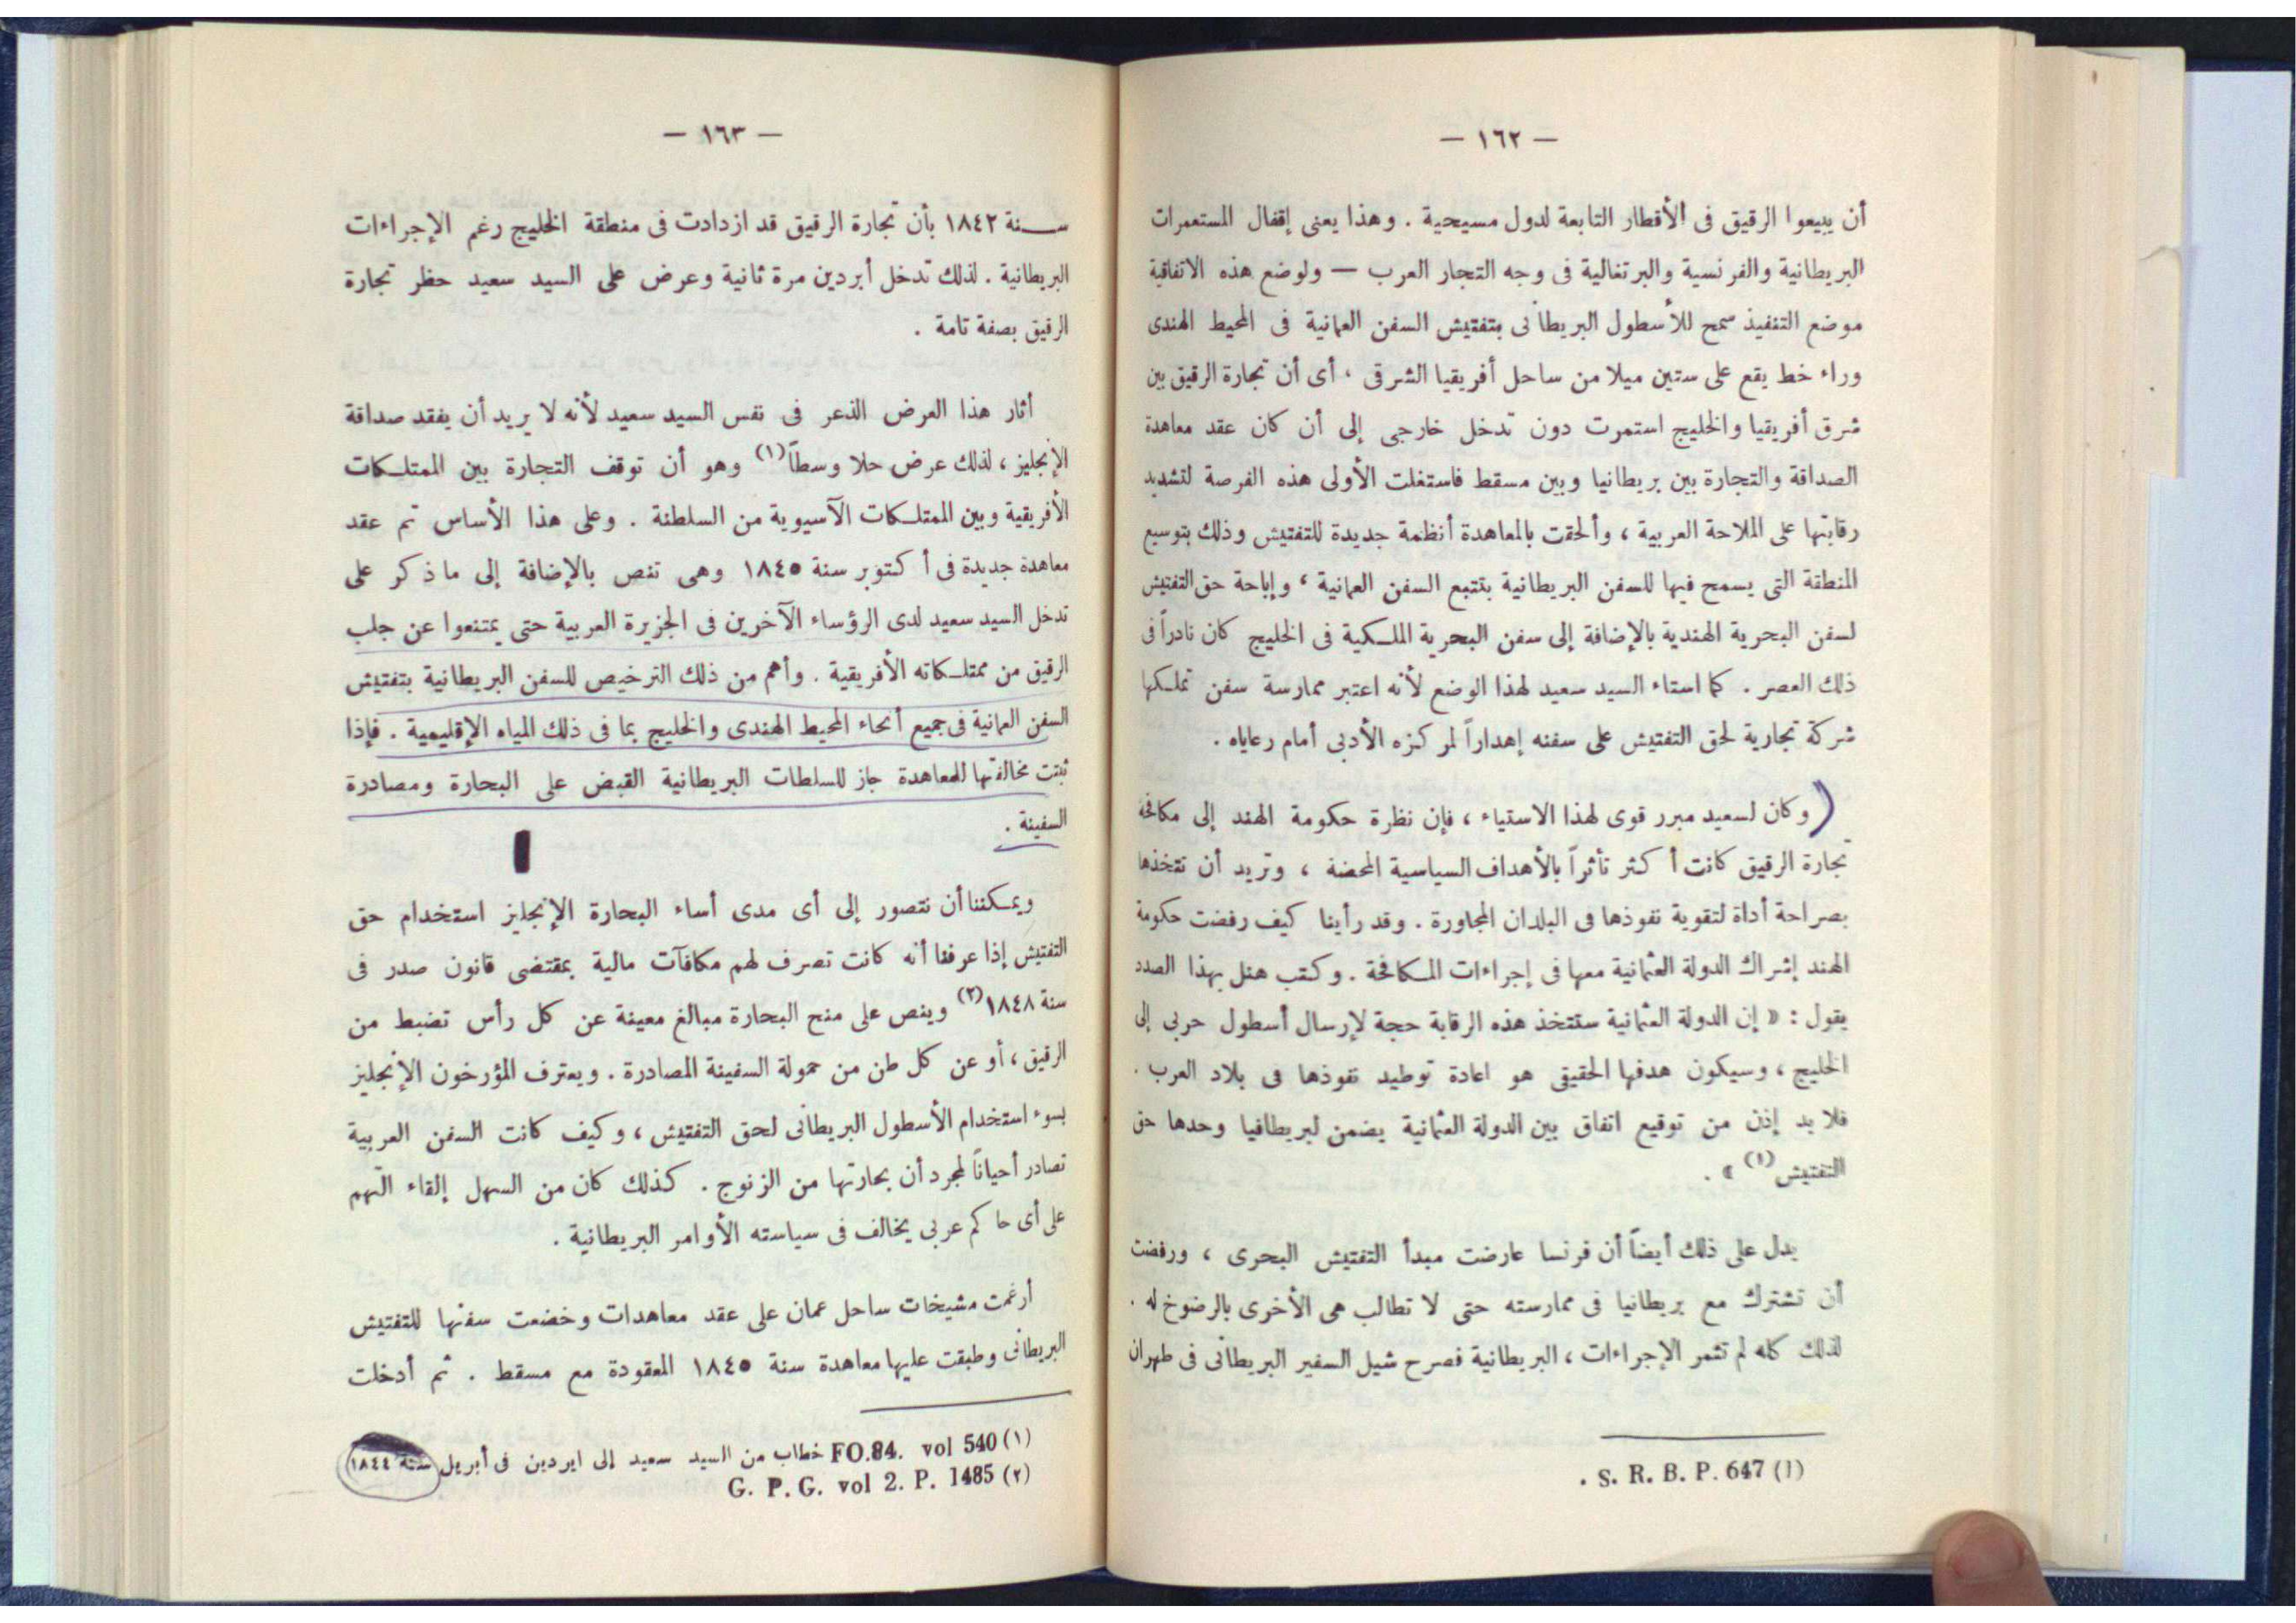 — ١٦٢ —
أن يبيعوا الرقيق فى الأقطار التابعة لدول مسيحية . وهذا يعنى إقفال المستعمرات
البريطانية والفرنسية والبرتغالية فى وجه التجار العرب — ولوضع هذه الاتفاقية
موضع التنفيذ سمح للأسطول البريطانى بتفتيش السفن العمانية فى المحيط الهندى
وراء خط يقع على ستين ميلا من ساحل أفريقيا الشرقى ، أى أن تجارة الرقيق بين
شرق أفريقيا والخليج استمرت دون تدخل خارجى إلى أن كان عقد معاهدة
الصداقة والتجارة بين بريطانيا وبين مسقط فاستغلت الأولى هذه الفرصة لتشديد
رقابتها على الملاحة العربية ، وألحقت بالمعاهدة أنظمة جديدة للتفتيش وذلك بتوسيع
المنطقة التى يسمح فيها للسفن البريطانية بتتبع السفن العمانية ، وإباحة حق التفتيش
لسفن البحرية الهندية بالإضافة إلى سفن البحرية الملكية فى الخليج كان نادراً فى
ذلك العصر . كما استاء السيد سعيد لهذا الوضع لأنه اعتبر ممارسة سفن تملكها
شركة تجارية لحق التفتيش على سفنه إهداراً لمركزه الأدبى أمام رعاياه .
( وكان لسعيد مبرر قوى لهذا الاستياء ، فإن نظرة حكومة الهند إلى مكافحة
تجارة الرقيق كانت أكثر تأثراً بالأهداف السياسية المحضة ، وتريد أن تتخذها
بصراحة أداة لتقوية نفوذها فى البلدان المجاورة . وقد رأينا كيف رفضت حكومة
الهند إشراك الدولة العثمانية معها فى إجراءات المكافحة . وكتب هنل بهذا الصدد
يقول : « إن الدولة العثمانية ستتخذ هذه الرقابة حجة لإرسال أسطول حربى إلى
الخليج ، وسيكون هدفها الحقيقى هو اعادة توطيد نفوذها فى بلاد العرب .
فلا بد إذن من توقيع اتفاق بين الدولة العثمانية يضمن لبريطافيا وحدها حق
التفتيش(١) » .
يدل على ذلك أيضاً أن فرنسا عارضت مبدأ التفتيش البحرى ، ورفضت
أن تشترك مع بريطانيا فى ممارسته حتى لا تطالب هى الأخرى بالرضوخ له .
لذلك كله لم تثمر الإجراءات ، البريطانية فصرح شيل السفير البريطانى فى طهران
(١) S. R. B. P. 647 .
— ١٦٣ —
سـنة ١٨٤٢ بأن تجارة الرقيق قد ازدادت فى منطقة الخليج رغم الإجراءات
البريطانية . لذلك تدخل أبردين مرة ثانية وعرض على السيد سعيد حظر تجارة
الرقيق بصفة تامة .
أثار هذا العرض الذعر فى نفس السيد سعيد لأنه لا يريد أن يفقد صداقة
الإنجليز ، لذلك عرض حلا وسطاً(١) وهو أن توقف التجارة بين الممتلكات
الأفريقية وبين الممتلكات الآسيوية من السلطنة . وعلى هذا الأساس تم عقد
معاهدة جديدة فى أكتوبر سنة ١٨٤٥ وهى تنص بالإضافة إلى ما ذكر على
تدخل السيد سعيد لدى الرؤساء الآخرين فى الجزيرة العربية حتى يمتنعوا عن جلب
الرقيق من ممتلكاته الأفريقية . وأهم من ذلك الترخيص للسفن البريطانية بتفتيش
السفن العمانية فى جميع أنحاء المحيط الهندى والخليج بما فى ذلك المياه الإقليمية . فإذا
ثبتت مخالفتها للمعاهدة جاز للسلطات البريطانية القبض على البحارة ومصادرة
السفينة .
ويمكننا أن نتصور إلى أى مدى أساء البحارة الإنجليز استخدام حق
التفتيش إذا عرفنا أنه كانت تصرف لهم مكافآت مالية بمقتضى قانون صدر فى
سنة ١٨٤٨(٢) وينص على منح البحارة مبالغ معينة عن كل رأس تضبط من
الرقيق ، أو عن كل طن من حمولة السفينة المصادرة . ويعترف المؤرخون الإنجليز
بسوء استخدام الأسطول البريطانى لحق التفتيش ، وكيف كانت السفن العربية
تصادر أحياناً لمجرد أن بحارتها من الزنوج . كذلك كان من السهل إلقاء التهم
على أى حاكم عربى يخالف فى سياسته الأوامر البريطانية .
أرغمت مشيخات ساحل عمان على عقد معاهدات وخضعت سفنها للتفتيش
البريطانى وطبقت عليها معاهدة سنة ١٨٤٥ المعقودة مع مسقط . ثم أدخلت
(١) FO.84. vol 540 خطاب من السيد سعيد إلى ابردين فى أبريل سنة ١٨٤٤
(٢) G. P. G. vol 2. P. 1485